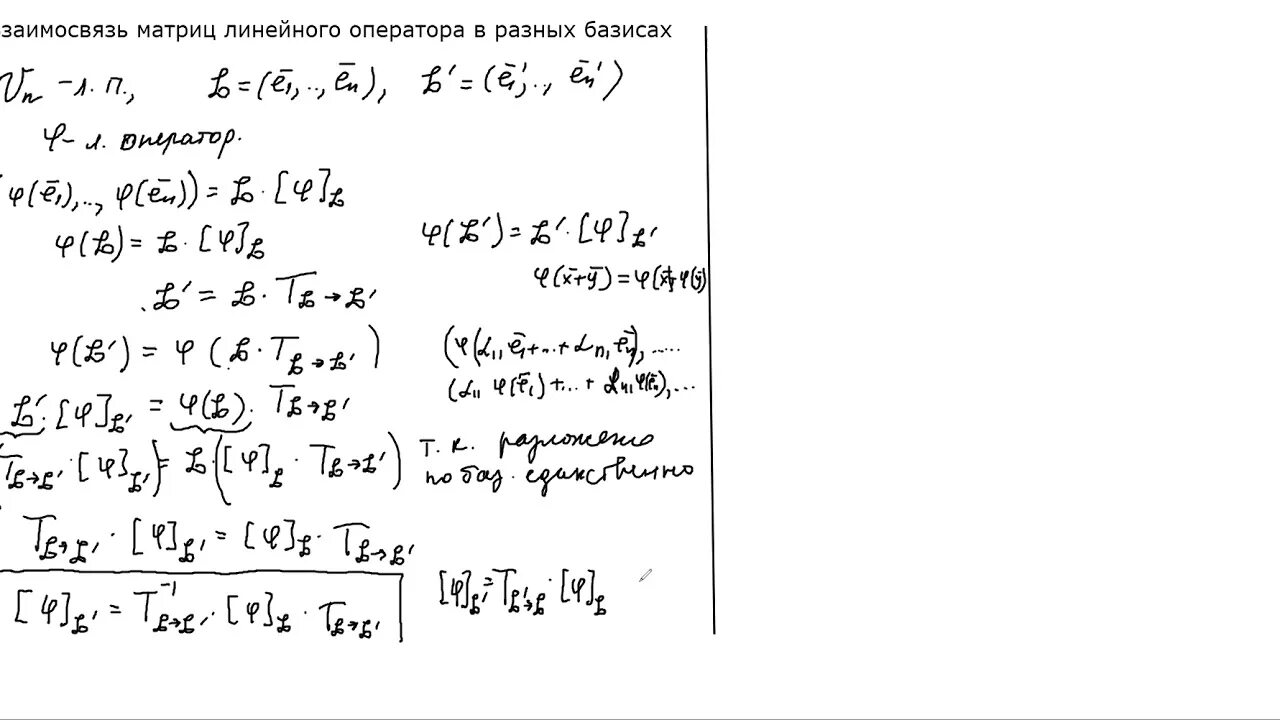 заимосвязь матриц линейного оператора в разных базисах
Vₙ – л. п., 𝓑 = (ē₁, .., ēₙ), 𝓑′ = (ē₁′, .., ēₙ′)
φ – л. оператор.
φ(ē₁), .., φ(ēₙ)) = 𝓑 · [φ]_𝓑
φ(𝓑) = 𝓑 · [φ]_𝓑 φ(𝓑′) = 𝓑′ · [φ]_𝓑′
φ(x̄+ȳ) = φ(x̄)+φ(ȳ)
𝓑′ = 𝓑 · T_𝓑→𝓑′
φ(𝓑′) = φ(𝓑 · T_𝓑→𝓑′) (φ(α₁₁ē₁+...+αₙ₁ēₙ), .....
(α₁₁ φ(ē₁) +...+ αₙ₁φ(ēₙ), ...
𝓑′ · [φ]_𝓑′ = φ(𝓑) · T_𝓑→𝓑′
T_𝓑→𝓑′ · [φ]_𝓑′) = 𝓑 · ([φ]_𝓑 · T_𝓑→𝓑′) т. к. разложение
по баз. единственно
T_𝓑→𝓑′ · [φ]_𝓑′ = [φ]_𝓑 · T_𝓑→𝓑′
[φ]_𝓑′ = T⁻¹_𝓑→𝓑′ · [φ]_𝓑 · T_𝓑→𝓑′ [φ]_𝓑′ = T_𝓑′→𝓑 · [φ]_𝓑